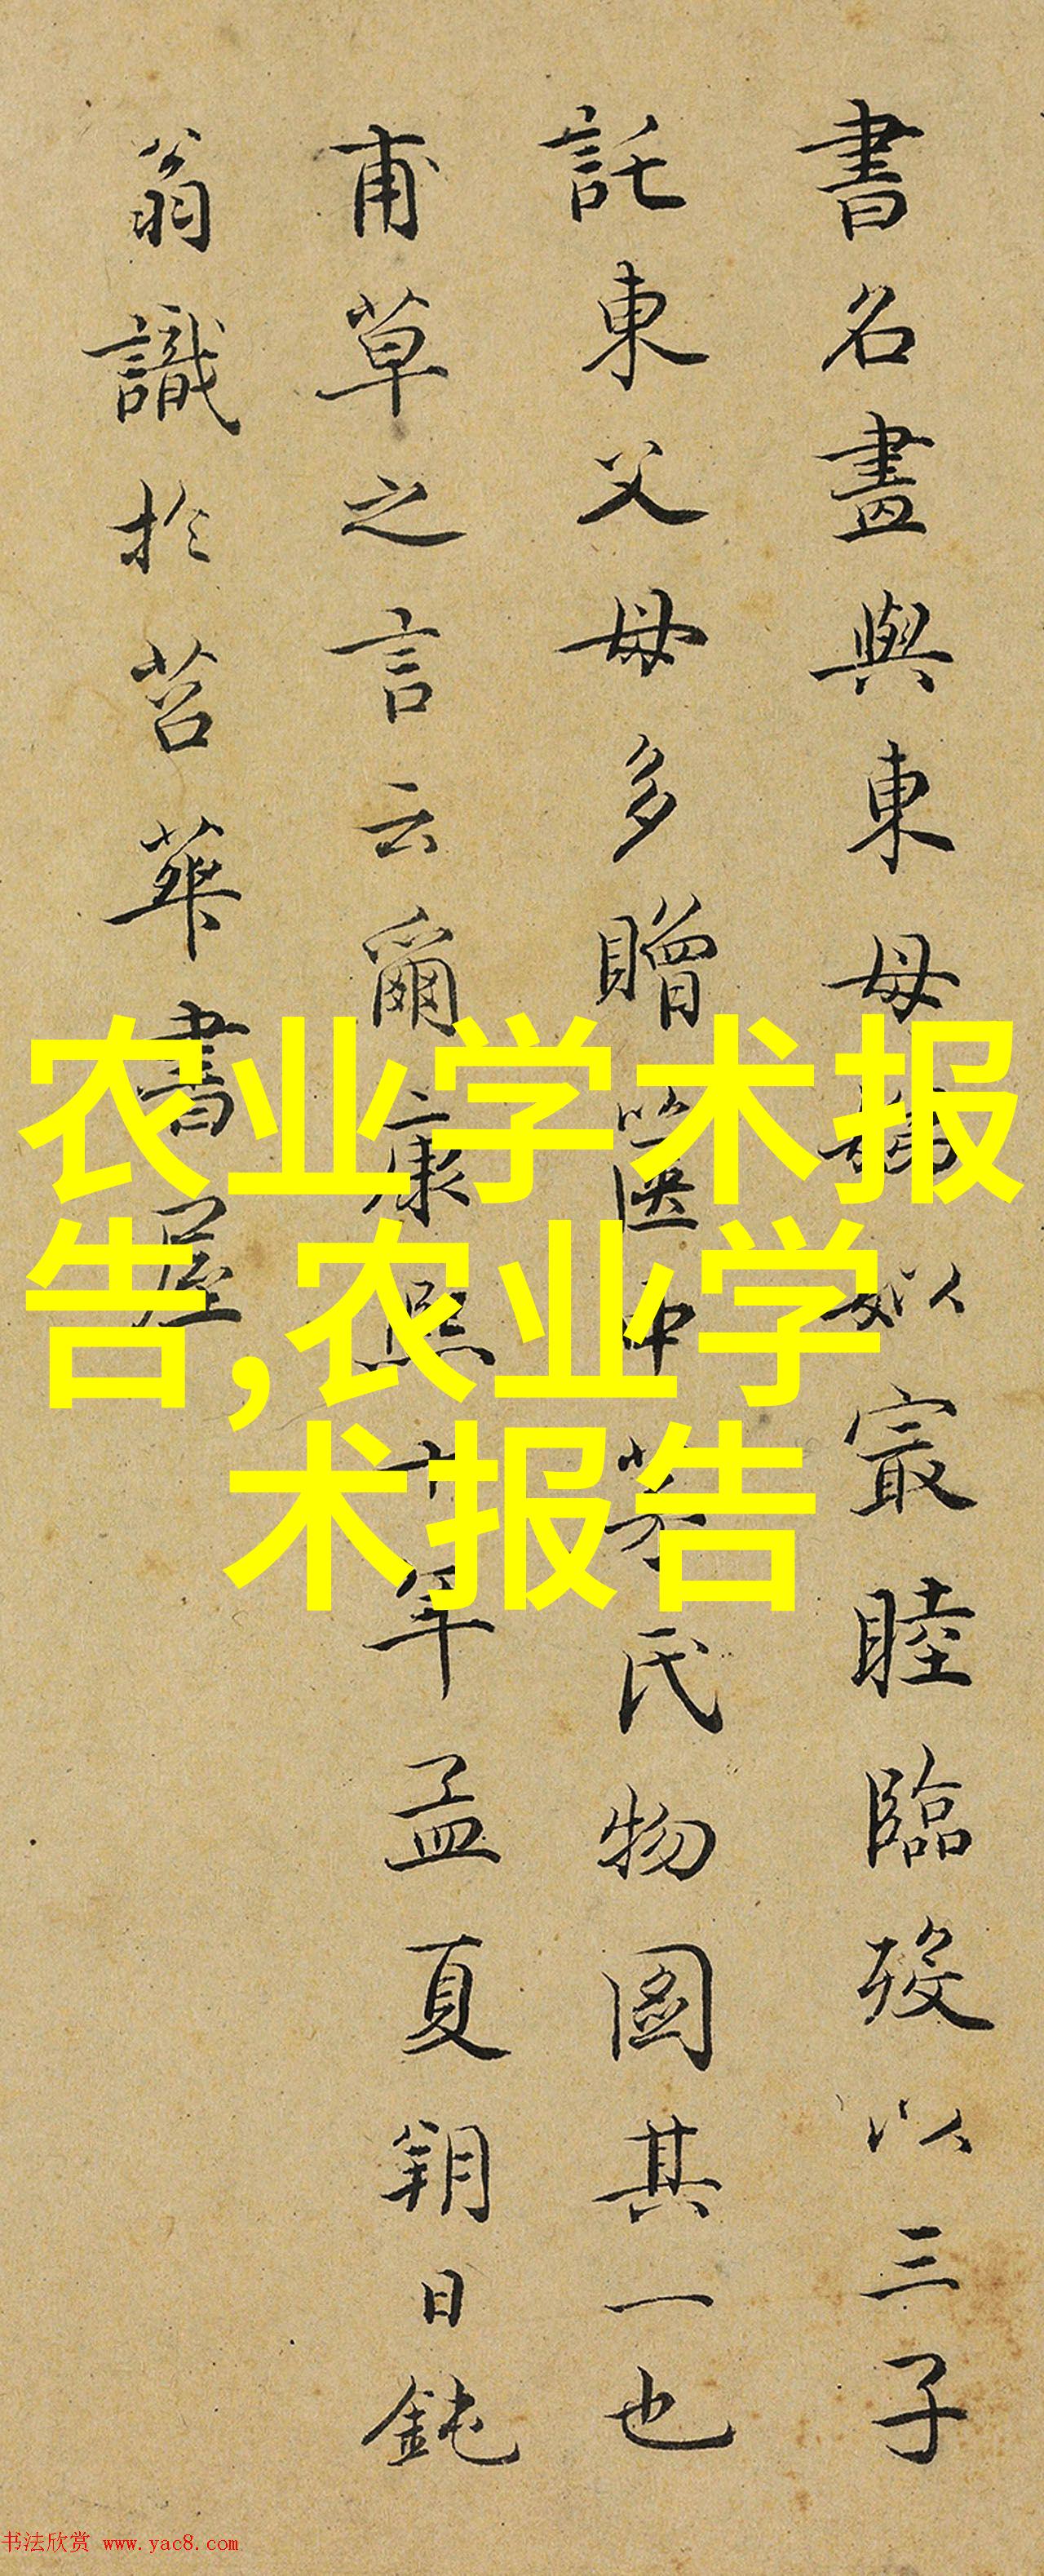 書名畫與東母為姒以寂睦臨歿以三子
託東父母多贈篋中芳氏物圖其一也
甫草之言云爾康熙十年孟夏朔日鈍
翁識於苕華書屋
农业学术报
告,农业学
术报告
书法欣赏 www.yac8.com